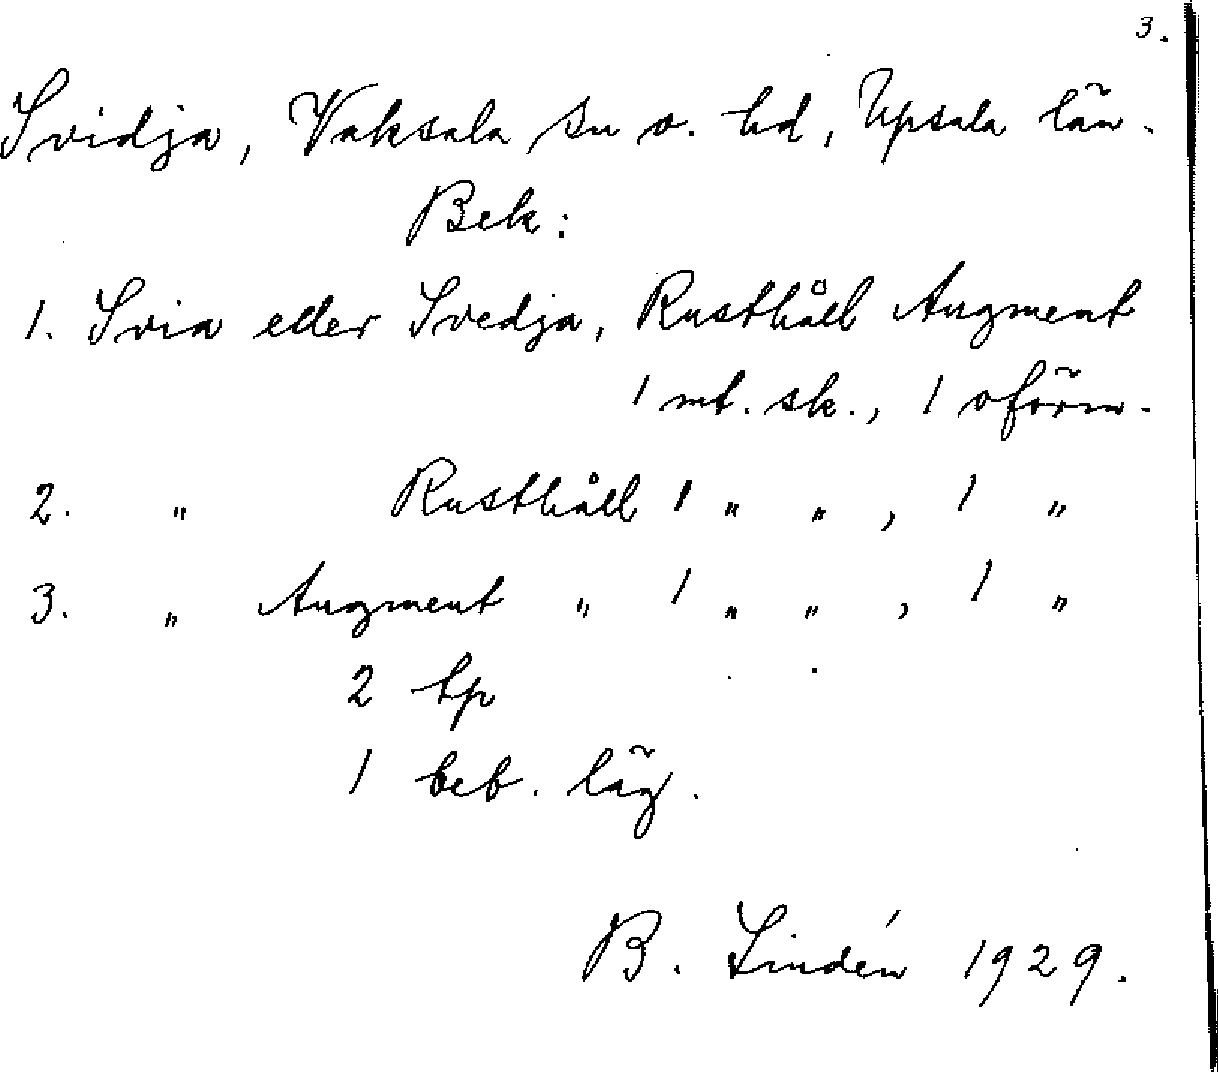 3.
Svidja, Vaksala sn o. hd, Upsala län.
Bek:
1. Svia eller Svedja, Rusthåll Augment
1 mt. sk., 1 oförm.
2. " Rusthåll 1 " " , 1 "
3. " Augment " 1 " " , 1 "
2 tp
1 beb. läg.
B. Lindén 1929.